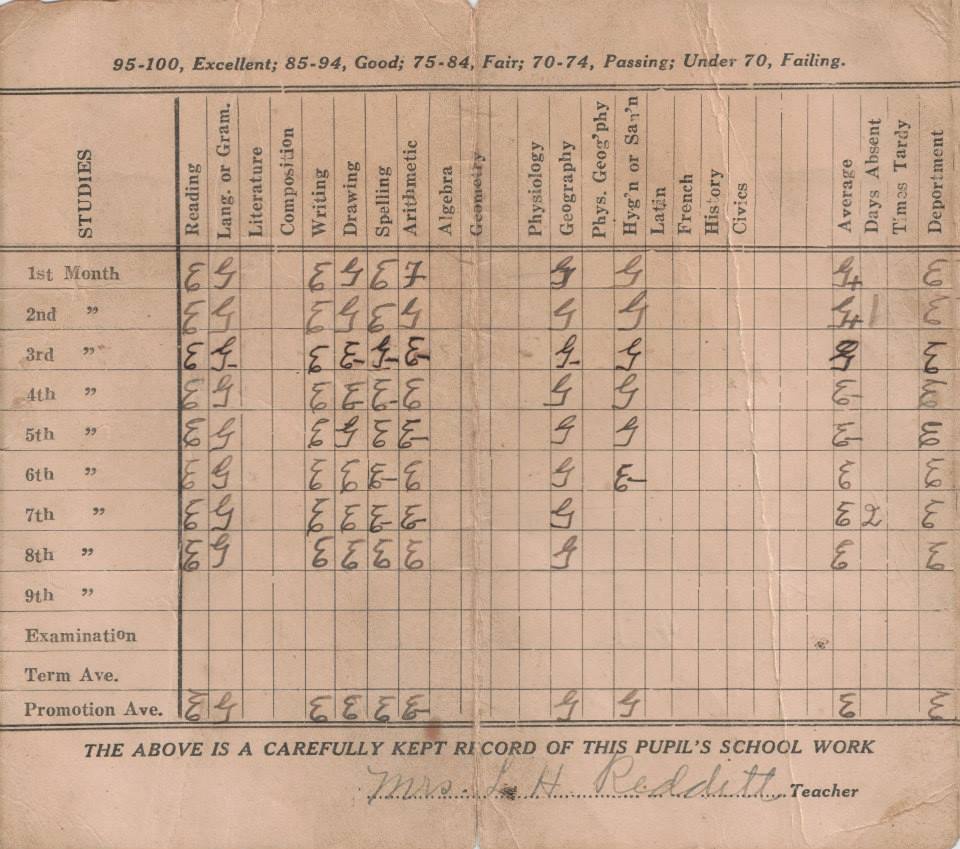 95-100, Excellent; 85-94, Good; 75-84, Fair; 70-74, Passing; Under 70, Failing.
STUDIES Reading Lang. or Gram. Literature Composition Writing Drawing Spelling Arithmetic Algebra Geometry Physiology Geography Phys. Geog'phy Hyg'n or San'n Latin French History Civics Average Days Absent Times Tardy Deportment
1st Month E G E G E F G G G+ E
2nd " E G E G E G G G G+ 1 E
3rd " E G- E E- G- E- G- G G E
4th " E G E E- E- E G G E- E
5th " E G E G E E- G G E- E
6th " E G E E E- E G E- E E
7th " E G E E E- E- G E 2 E
8th " E G E E E E G E E
9th "
Examination
Term Ave.
Promotion Ave. E G E E E E- G G E E
THE ABOVE IS A CAREFULLY KEPT RECORD OF THIS PUPIL'S SCHOOL WORK
Mrs. L H Redditt Teacher